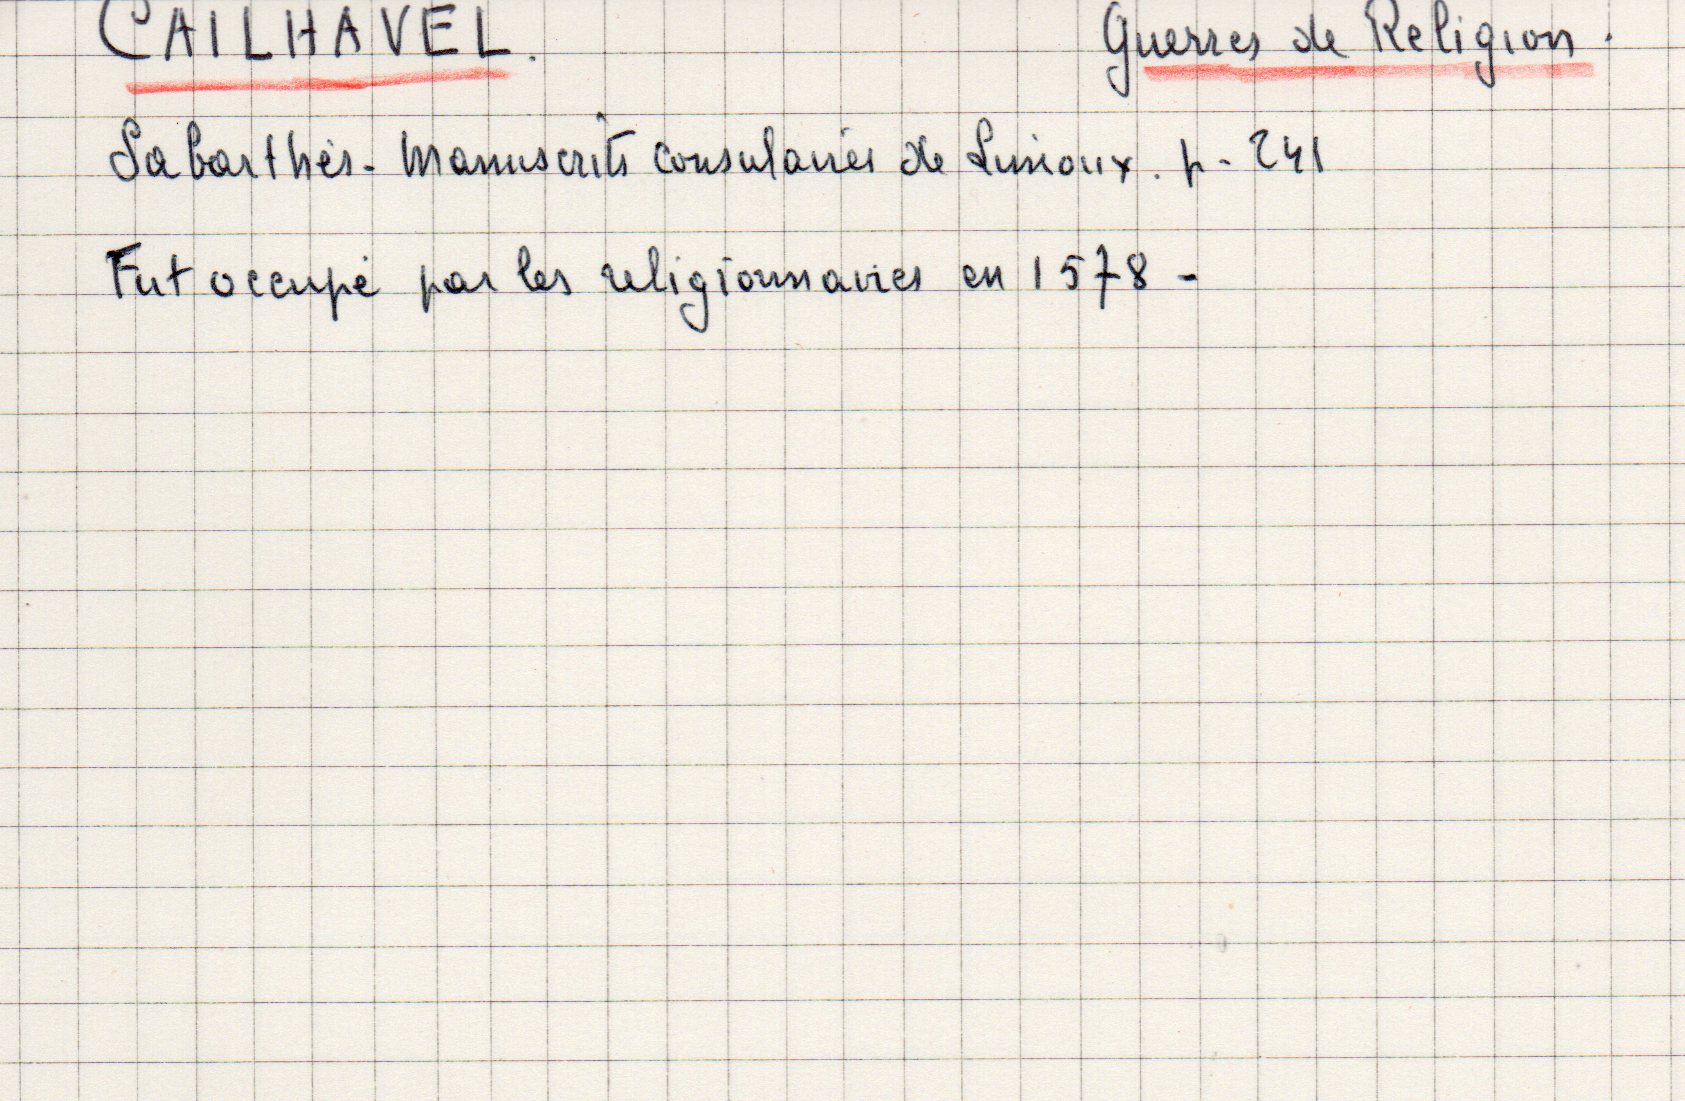 CAILHAVEL. Guerres de Religion.
Sabarthès - Manuscrits consulaires de Limoux. p - 241
Fut occupé par les religionnaires en 1578 -